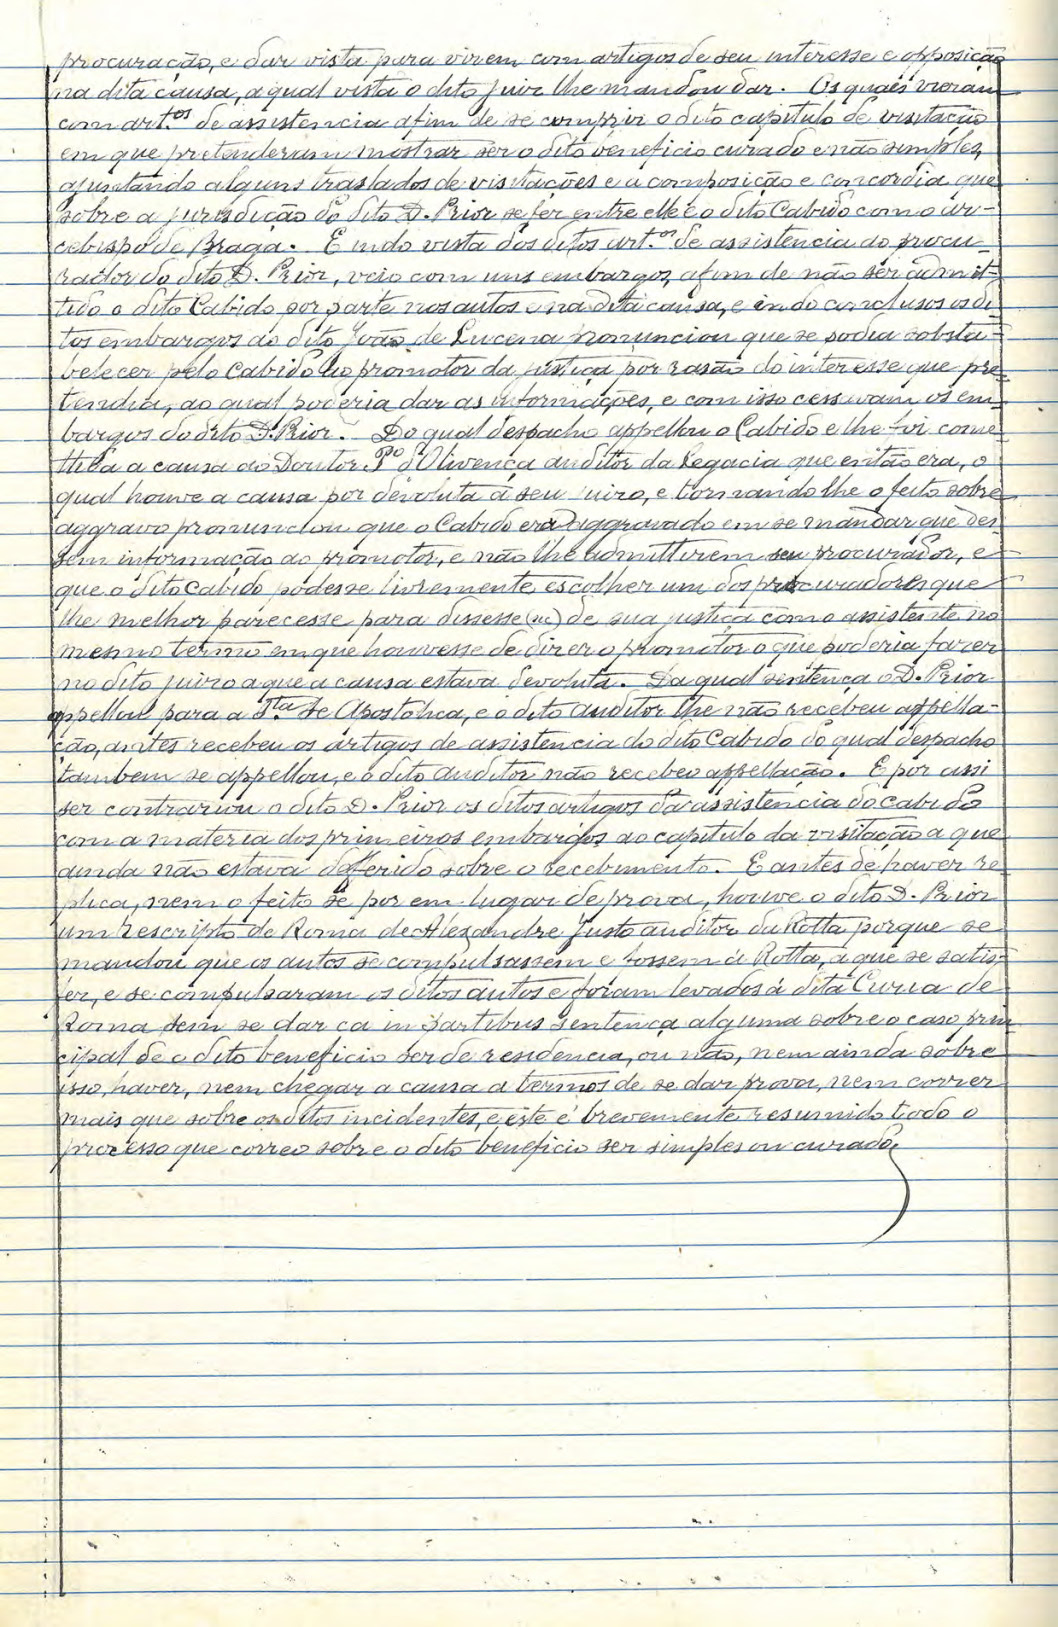 procuração, e dar vista para virem com artigos de seu interesse e opposição
na dita causa, a qual vista o dito juiz lhe mandou dar. Os quaes vieram
com art.os de assistencia afim de se comprir o dito capitulo de visitação
em que pretenderam mostrar ser o dito veneficio curado e não simples,
ajuntando alguns traslados de visitações e a composição e concordia que
sobre a jurisdição do dito D. Prior se fez entre elle e o dito Cabido com o ar-
cebispo de Braga. E indo vista dos ditos art.os de assistencia ao procu-
rador do dito D. Prior, veio com uns embargos, afim de não ser admit-
tido o dito Cabido por parte nos autos e na dita causa, e indo conclusos os di-
tos embargos ao dito João de Lucena pronunciou que se podia sobsta-
belecer pelo Cabido ao promotor da justiça por rasão do interesse que pre-
tendia, ao qual poderia dar as informações, e com isso cessavam os em-
bargos do dito D. Prior. Do qual despacho appellou o Cabido e lhe foi come-
ttida a causa ao Doutor P.o d'Olivença auditor da Legacia que então era, o
qual houve a causa por devoluta á seu juizo, e tornando lhe o feito sobre
aggravo pronunciou que o Cabido era aggravado em se mandar que des-
sem informação ao promotor, e não lhe admittirem seu procurador, e
que o dito Cabido podesse livremente escolher um dos procuradores que
lhe melhor parecesse para dissesse (sic) de sua justiça como assistente no
mesmo termo em que houvesse de dizer o promotor o que poderia fazer
no dito juizo a que a causa estava devoluta. Da qual sentença o D. Prior
appellou para a S.ta Se Apostolica, e o dito auditor lhe não recebeu appella-
ção, antes recebeu os artigos de assistencia do dito Cabido do qual despacho
tambem se appellou, e o dito auditor não recebeo appellação. E por assi
ser contrariou o dito D. Prior os ditos artigos da assistencia do Cabido
com a materia dos primeiros embargos ao capitulo da visitação a que
ainda não estava differido sobre o recebimento. E antes de haver re-
plica, nem o feito se por em lugar de prova, houve o dito D. Prior
um rescripto de Roma de Alexandre Justo auditor da Rotta porque se
mandou que os autos se compulsassem e fossem á Rotta, a que se satis-
fez, e se compulsaram os ditos autos e foram levados á dita Curia de
Roma sem se dar cá in partibus sentença alguma sobre o caso prin-
cipal de o dito beneficio ser de residencia, ou não, nem ainda sobre
isso, haver, nem chegar a causa a termos de se dar prova, nem correr
mais que sobre os ditos incidentes, e este é brevemente resumido todo o
processo que correo sobre o dito beneficio ser simples ou curado.